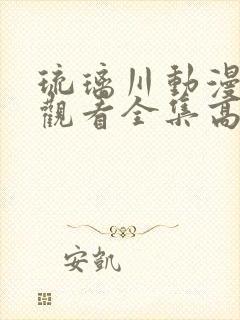 琉璃川動漫
觀看全集高
安凱